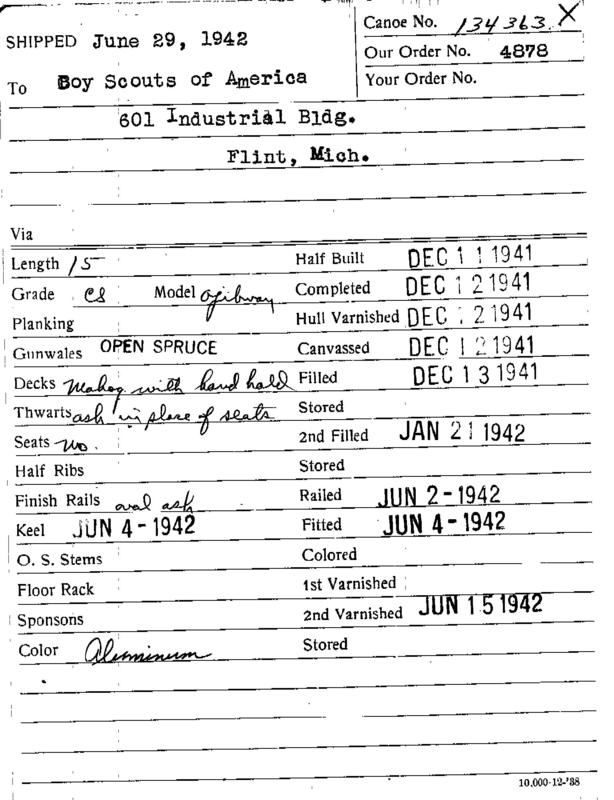 SHIPPED June 29, 1942
Canoe No. 134363 X
Our Order No. 4878
To Boy Scouts of America
Your Order No.
601 Industrial Bldg.
Flint, Mich.
Via
Length 15 Half Built DEC 11 1941
Grade CS Model Ogibway Completed DEC 12 1941
Planking Hull Varnished DEC 12 1941
Gunwales OPEN SPRUCE Canvassed DEC 12 1941
Decks Mahog with hand hold Filled DEC 13 1941
Thwarts ash in place of seats Stored
Seats no. 2nd Filled JAN 21 1942
Half Ribs Stored
Finish Rails oval ash Railed JUN 2-1942
Keel JUN 4-1942 Fitted JUN 4-1942
O. S. Stems Colored
Floor Rack 1st Varnished
Sponsons 2nd Varnished JUN 15 1942
Color Aluminum Stored
10,000-12-'38